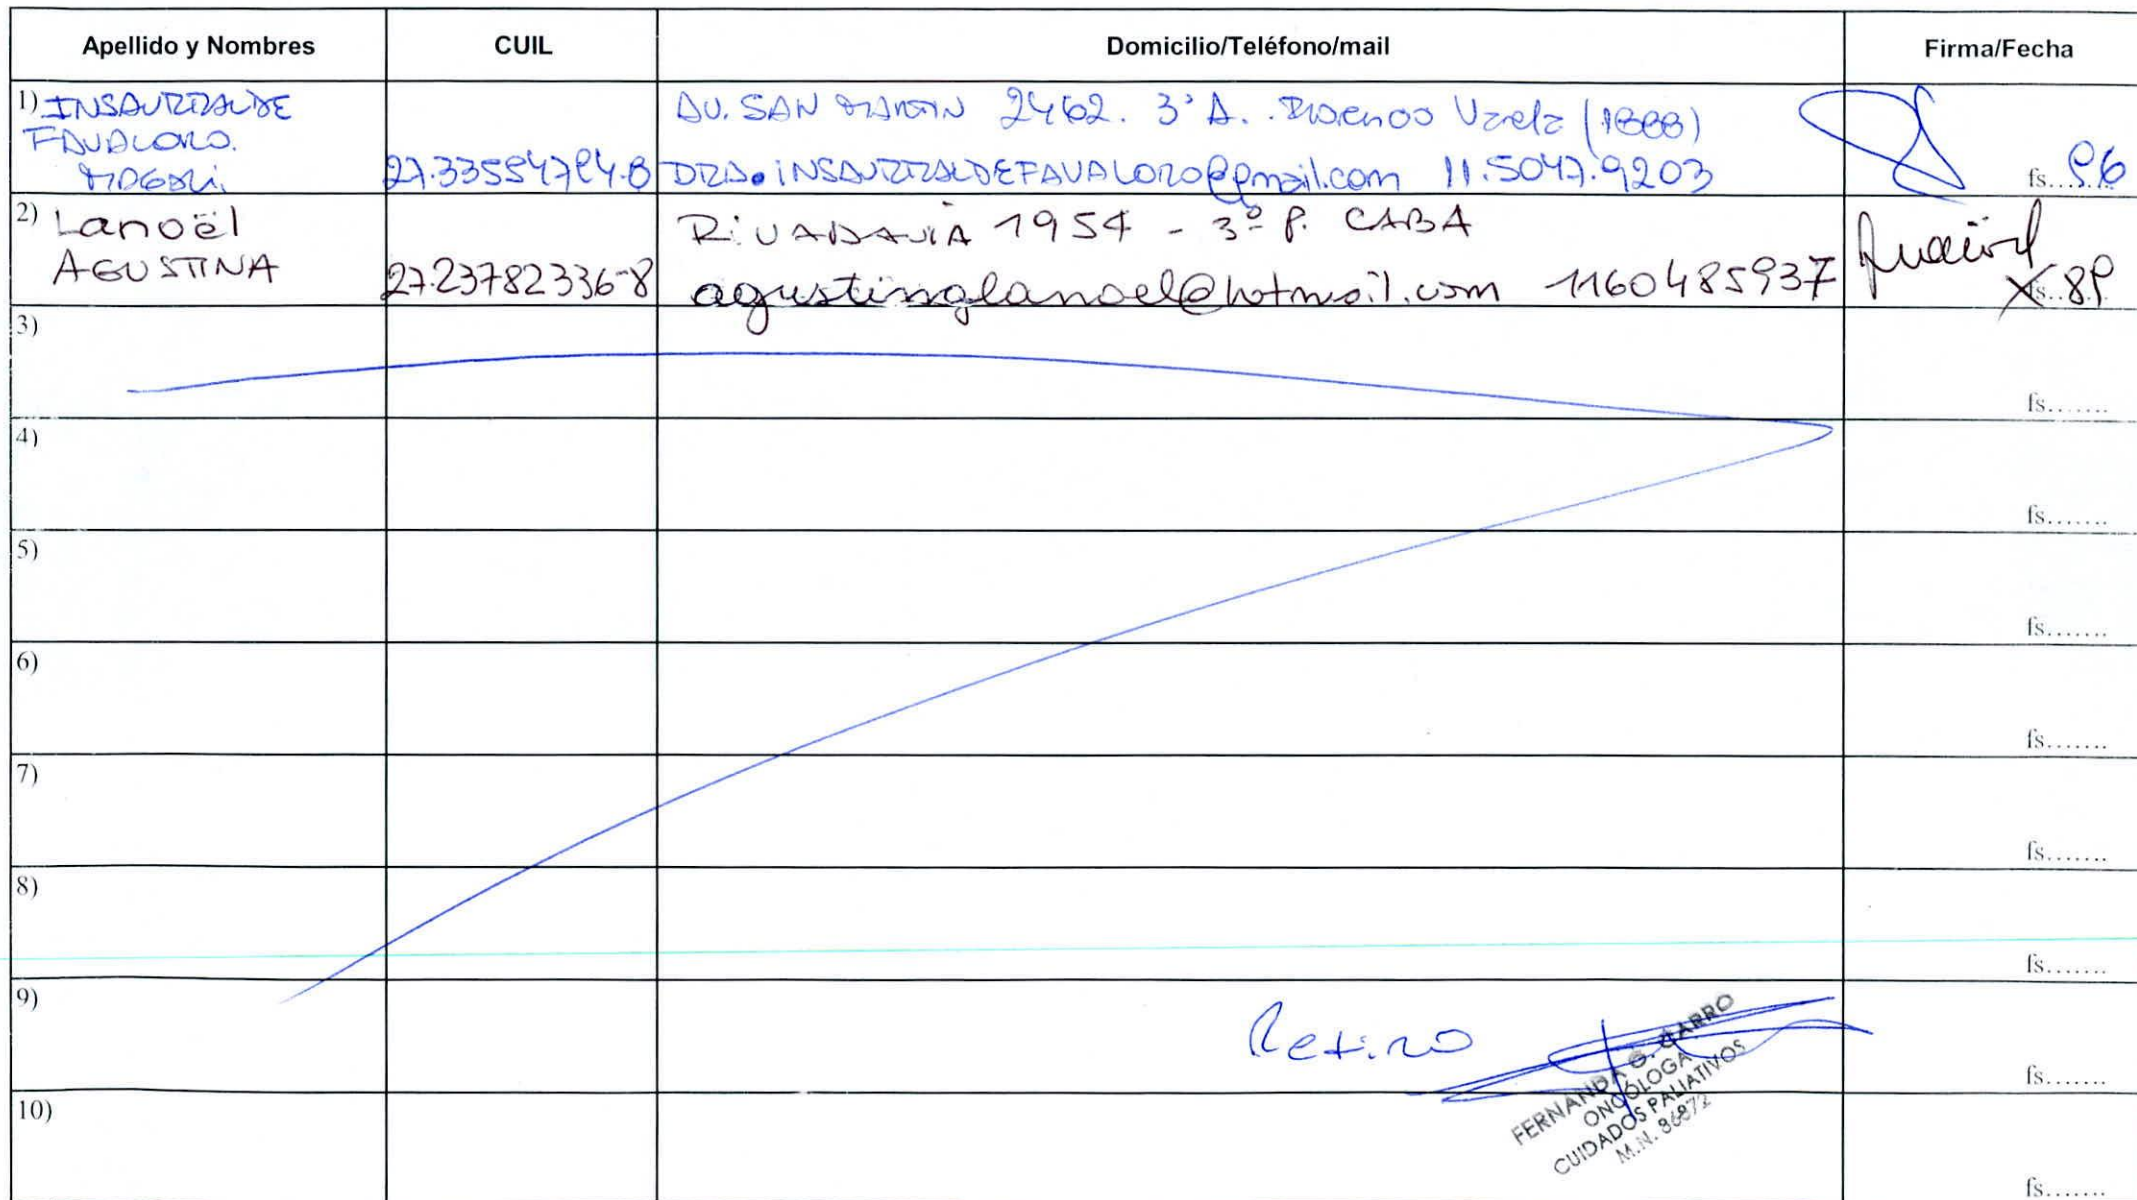 Apellido y Nombres CUIL Domicilio/Teléfono/mail Firma/Fecha
1) INSAURRALDE
FAVALORO.
MAGALI.
AV. SAN MARTIN 2462. 3° A. Varela (1888)
DRA.INSAURRALDEFAVALORO@gmail.com 11.5047.9203
fs.
2) Lanoël
AGUSTINA
27.23782336-8
RiVADAVIA 1954 - 3º P. CABA
agustinalanoel@hotmail.com 1160485937
fs.
3)
fs.......
4)
fs.......
5)
fs.......
6)
fs.......
7)
fs.......
8)
fs.......
9)
Retiro
fs.......
FERNANDA G. CARRO
ONCÓLOGA
CUIDADOS PALIATIVOS
M.N.
10)
fs.......